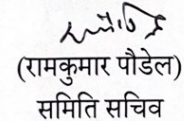 (रामकुमार पौडेल)
समिति सचिव